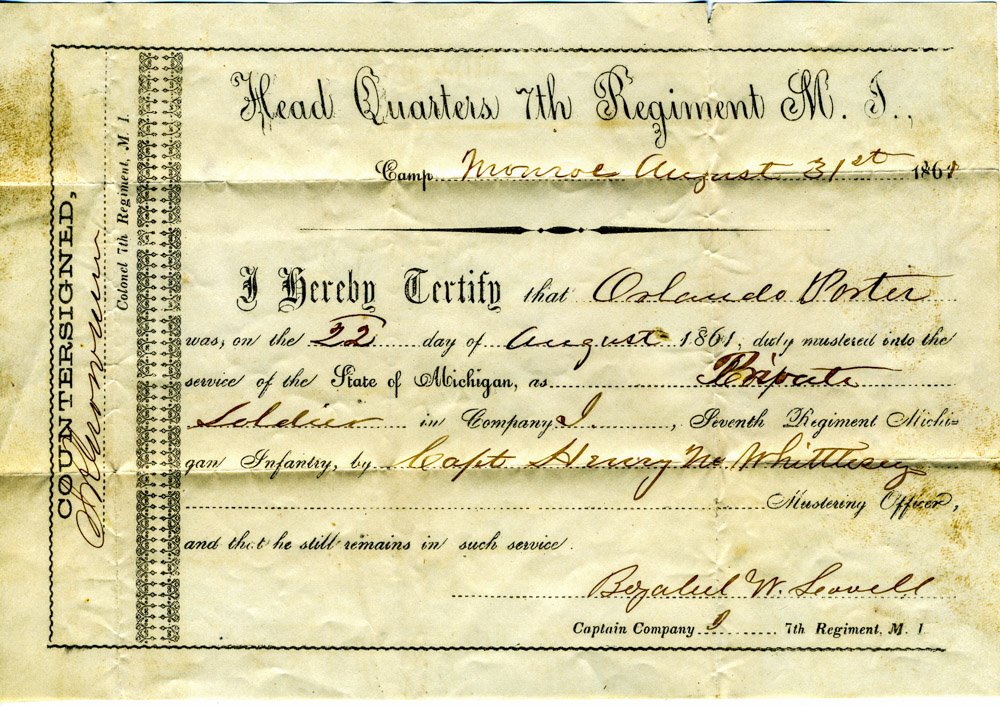 Head Quarters 7th Regiment M. I.,
Camp Monroe August 31st 1861
I Hereby Certify that Orlando Porter
was, on the 22 day of August 1861, duly mustered into the
service of the State of Michigan, as Private
Soldier in Company I, Seventh Regiment Michi=
gan Infantry, by Capt Henry M Whittlesey
Mustering Officer,
and that he still remains in such service.
Bezaleel W. Lovell
Captain Company I 7th Regiment, M. I.
COUNTERSIGNED,
Colonel 7th Regiment, M. I.